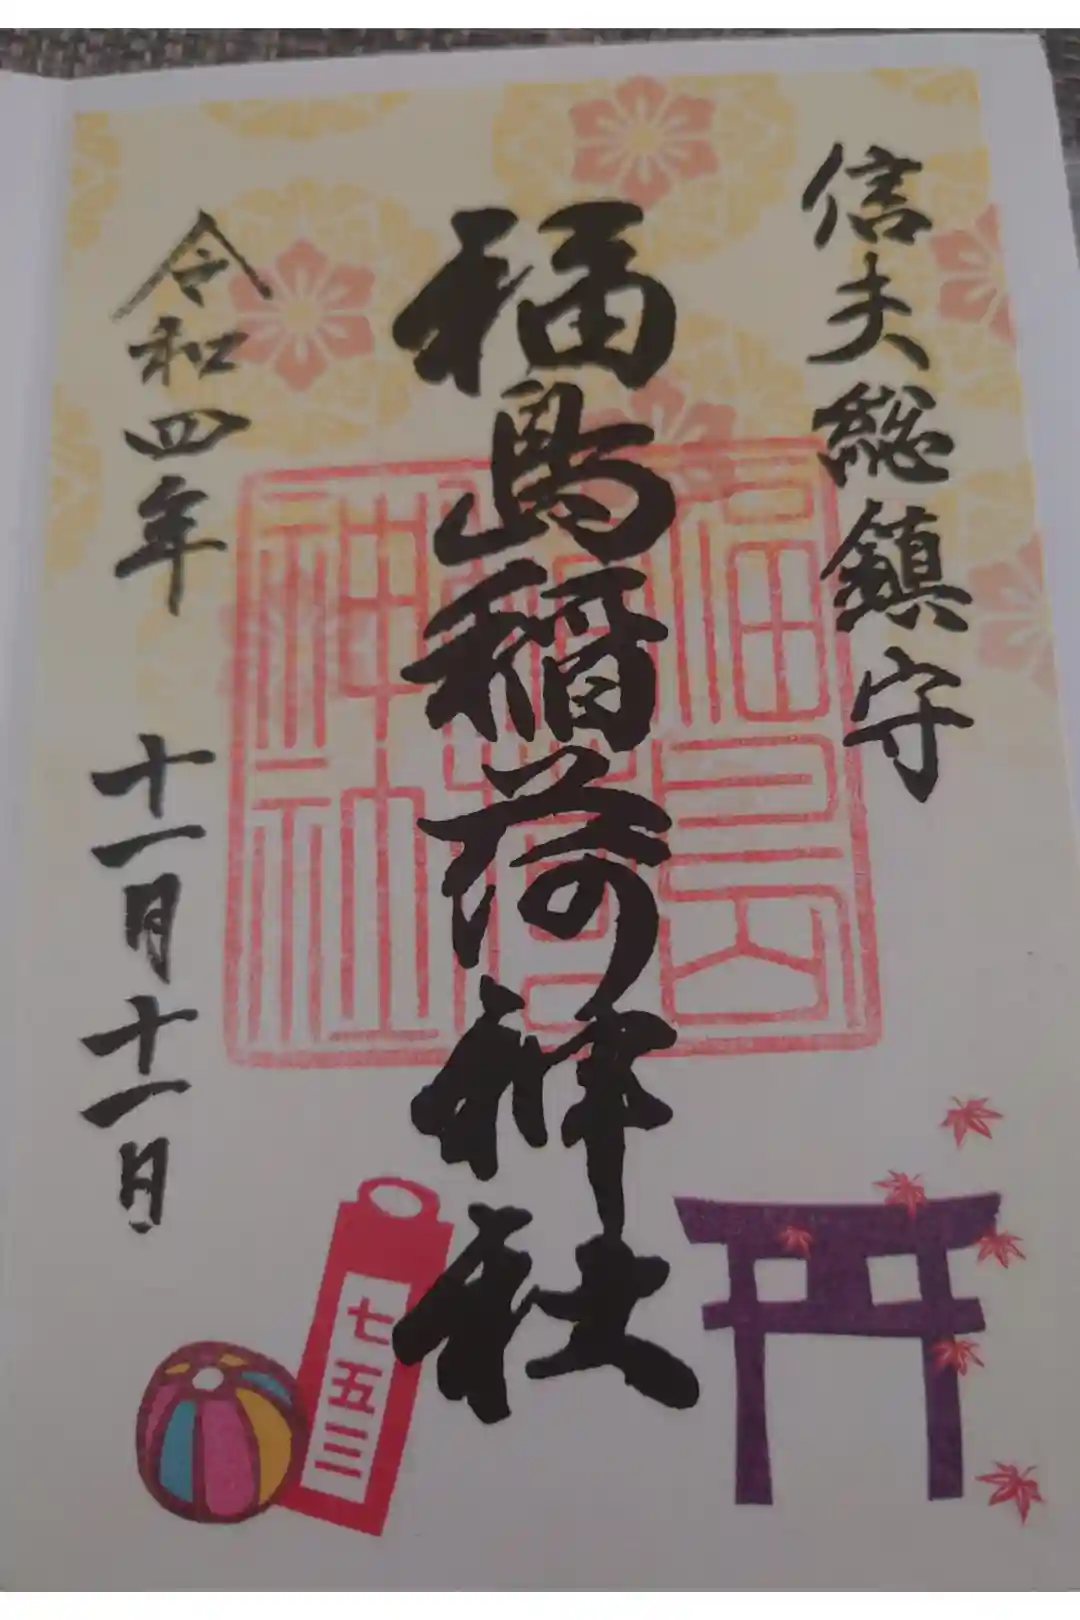 信夫総鎮守
福島稲荷神社
令和四年 十一月十一日
福島
稲荷
神社
七五三